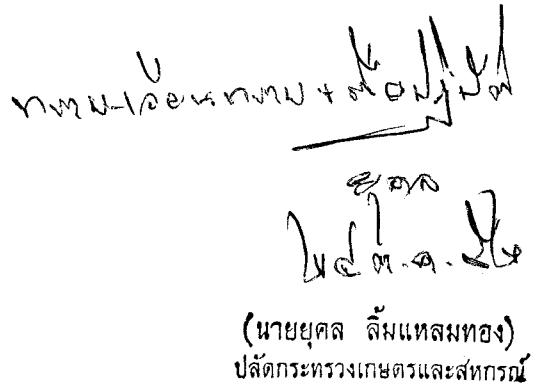 ทราบ-เวียนทราบ + ถือปฏิบัติ
ยุคล
(นายยุคล ลิ้มแหลมทอง)
ปลัดกระทรวงเกษตรและสหกรณ์